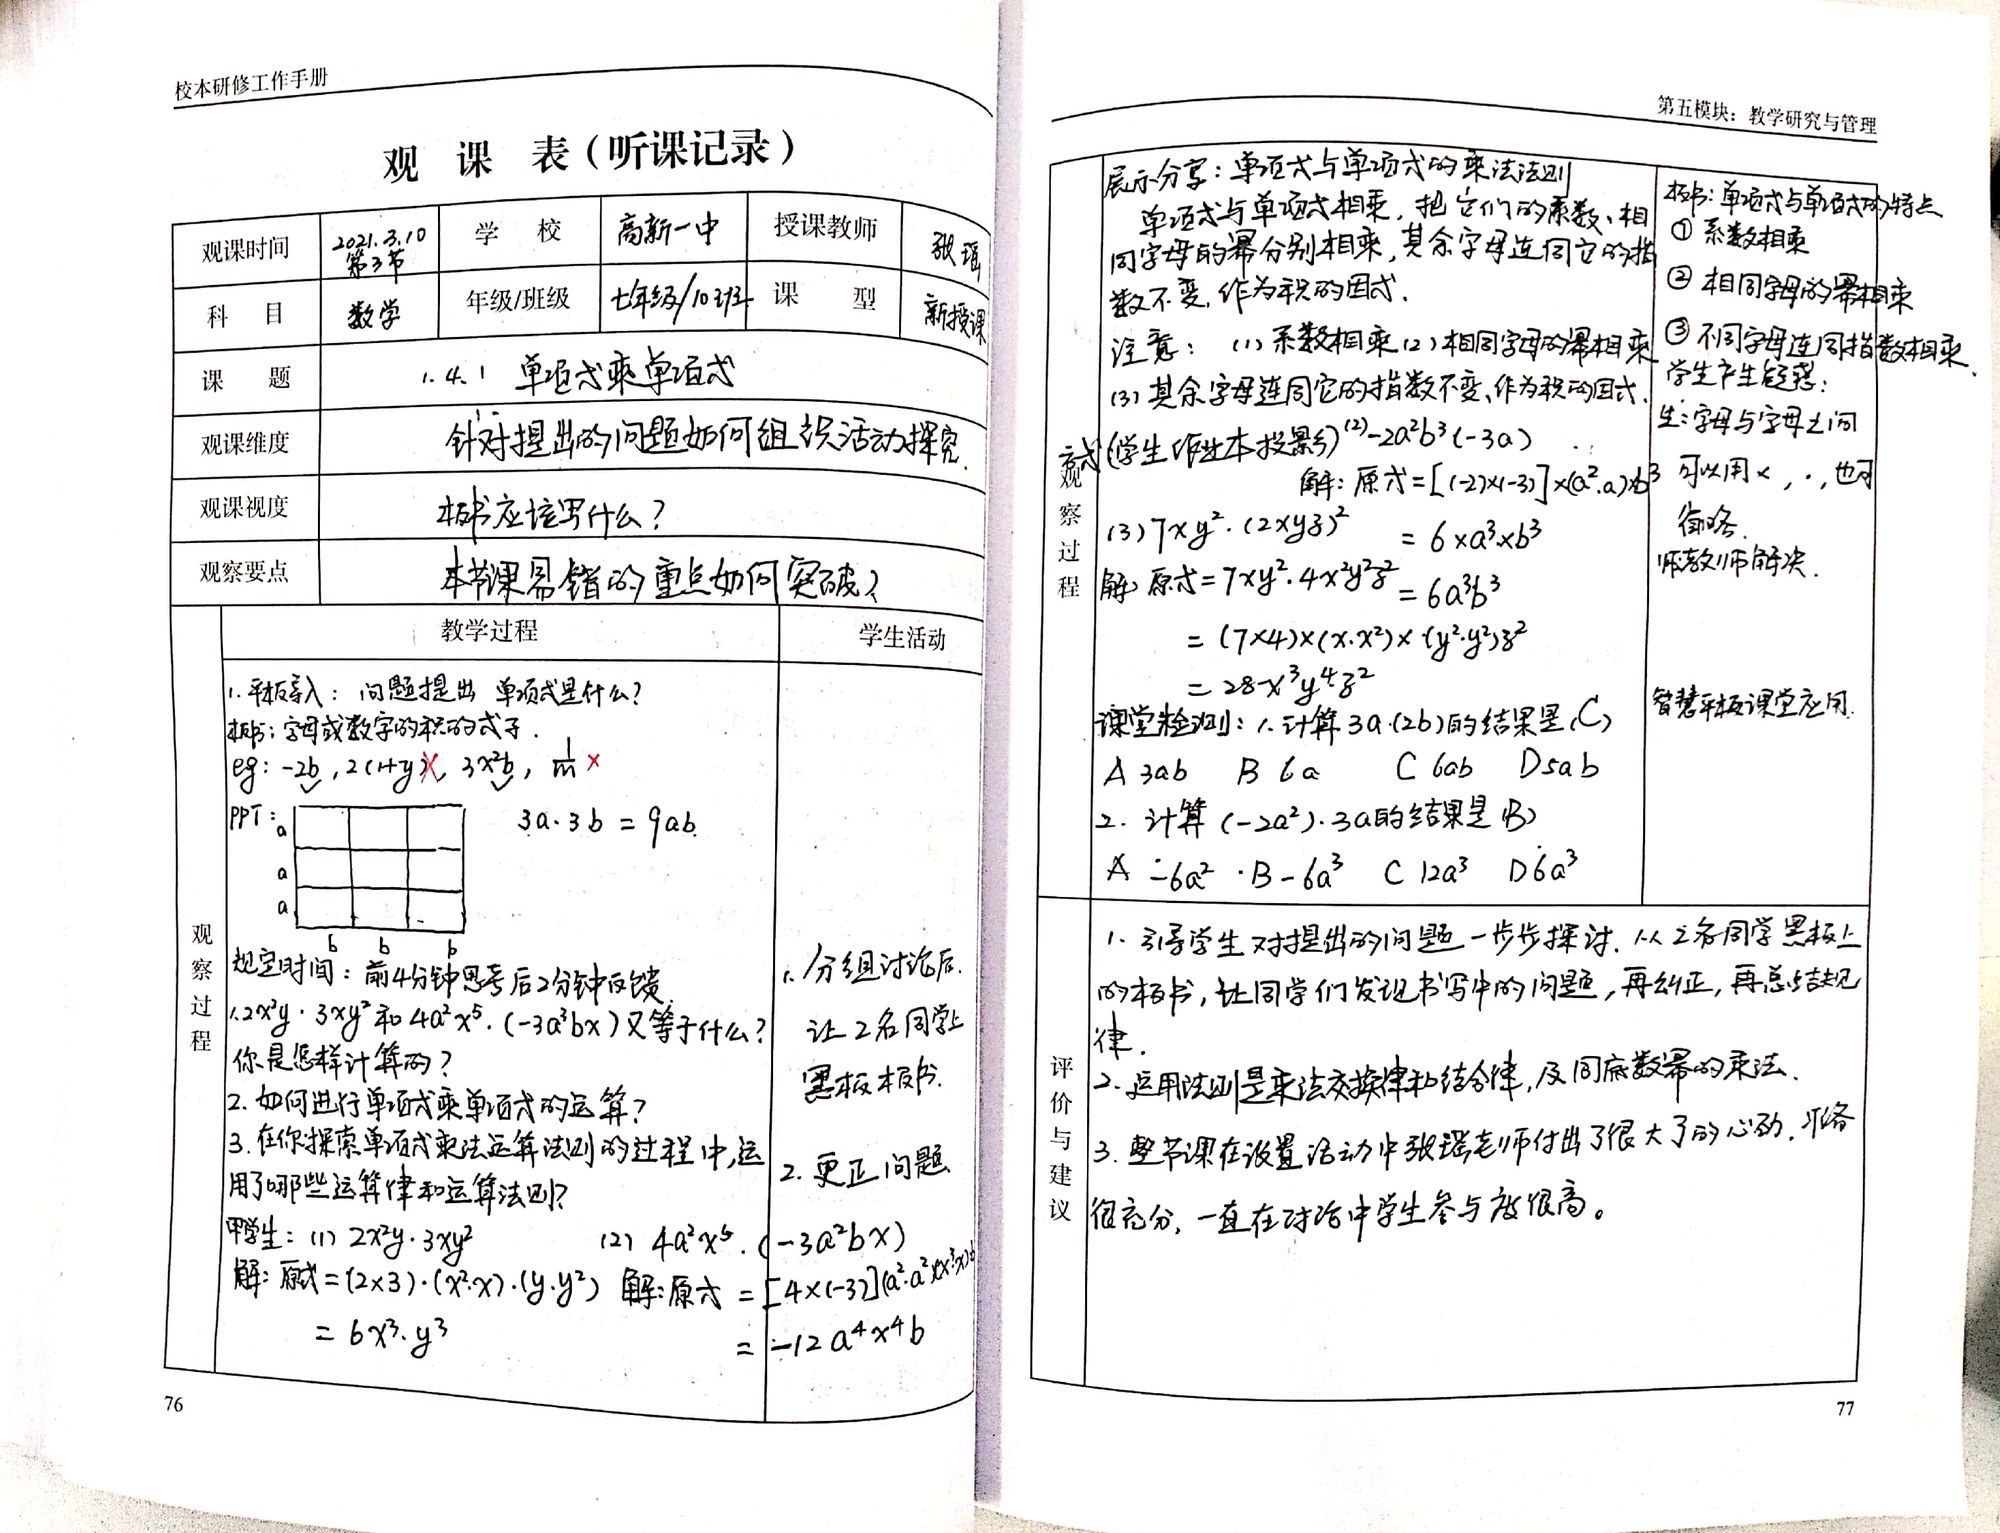 校本研修工作手册
观 课 表（听课记录）
观课时间 2021.3.10 第3节 学 校 高新一中 授课教师 张瑶
科 目 数学 年级/班级 七年级/10班 课 型 新授课
课 题 1.4.1 单项式乘单项式
观课维度 针对提出的问题如何组织活动探究.
观课视度 板书应该写什么?
观察要点 本节课易错的重点如何突破?
教学过程 学生活动
观察过程
1.平板导入: 问题提出 单项式是什么?
板书:字母或数字的积的式子.
eg: -2b✓, 2(1+y)×, 3x²b✓, 1/m ×
PPT: a
a
a
b b b
3a·3b = 9ab.
规定时间:前4分钟思考后2分钟反馈.
1.2x²y·3xy²和4a²x⁵·(-3a³bx)又等于什么?
你是怎样计算的?
2.如何进行单项式乘单项式的运算?
3.在你探索单项式乘法运算法则的过程中,运
用了哪些运算律和运算法则?
甲学生: (1) 2x²y·3xy²
解:原式=(2×3)·(x²·x)·(y·y²)
= 6x³·y³
(2) 4a²x⁵·(-3a²bx)
解:原式 = [4×(-3)](a²·a²)(x³·x)·b
= -12a⁴x⁴b
1.分组讨论后.
让2名同学上
黑板板书.
2.更正问题
76
第五模块：教学研究与管理
观察过程
展示分享:单项式与单项式的乘法法则
单项式与单项式相乘,把它们的系数、相
同字母的幂分别相乘,其余字母连同它的指
数不变,作为积的因式.
注意: (1)系数相乘(2)相同字母的幂相乘
(3)其余字母连同它的指数不变,作为积的因式.
(学生作业本投影)(2)-2a²b³(-3a)
解:原式=[(-2)×(-3)]×(a²·a)×b³
= 6×a³×b³
= 6a³b³
(3) 7xy²·(2xyz)²
解:原式=7xy²·4x²y²z²
= (7×4)×(x·x²)×(y²·y²)z²
= 28x³y⁴z²
课堂检测: 1.计算3a·(2b)的结果是(C)
A 3ab B 6a C 6ab D 5ab
2. 计算 (-2a²)·3a的结果是(B)
A -6a² B -6a³ C 12a³ D 6a³
板书:单项式与单项式的特点
① 系数相乘
② 相同字母的幂相乘
③ 不同字母连同指数相乘.
学生产生疑惑:
生:字母与字母之间
可以用×,·,也可
省略.
师:教师解决.
智慧平板课堂应用.
评价与建议
1. 引导学生对提出的问题一步步探讨.从2名同学黑板上
的板书,让同学们发现书写中的问题,再纠正,再总结规
律.
2. 运用法则是乘法交换律和结合律,及同底数幂的乘法.
3. 整节课在设置活动中张瑶老师付出了很大了的心动.准备
很充分,一直在讨论中学生参与度很高。
77